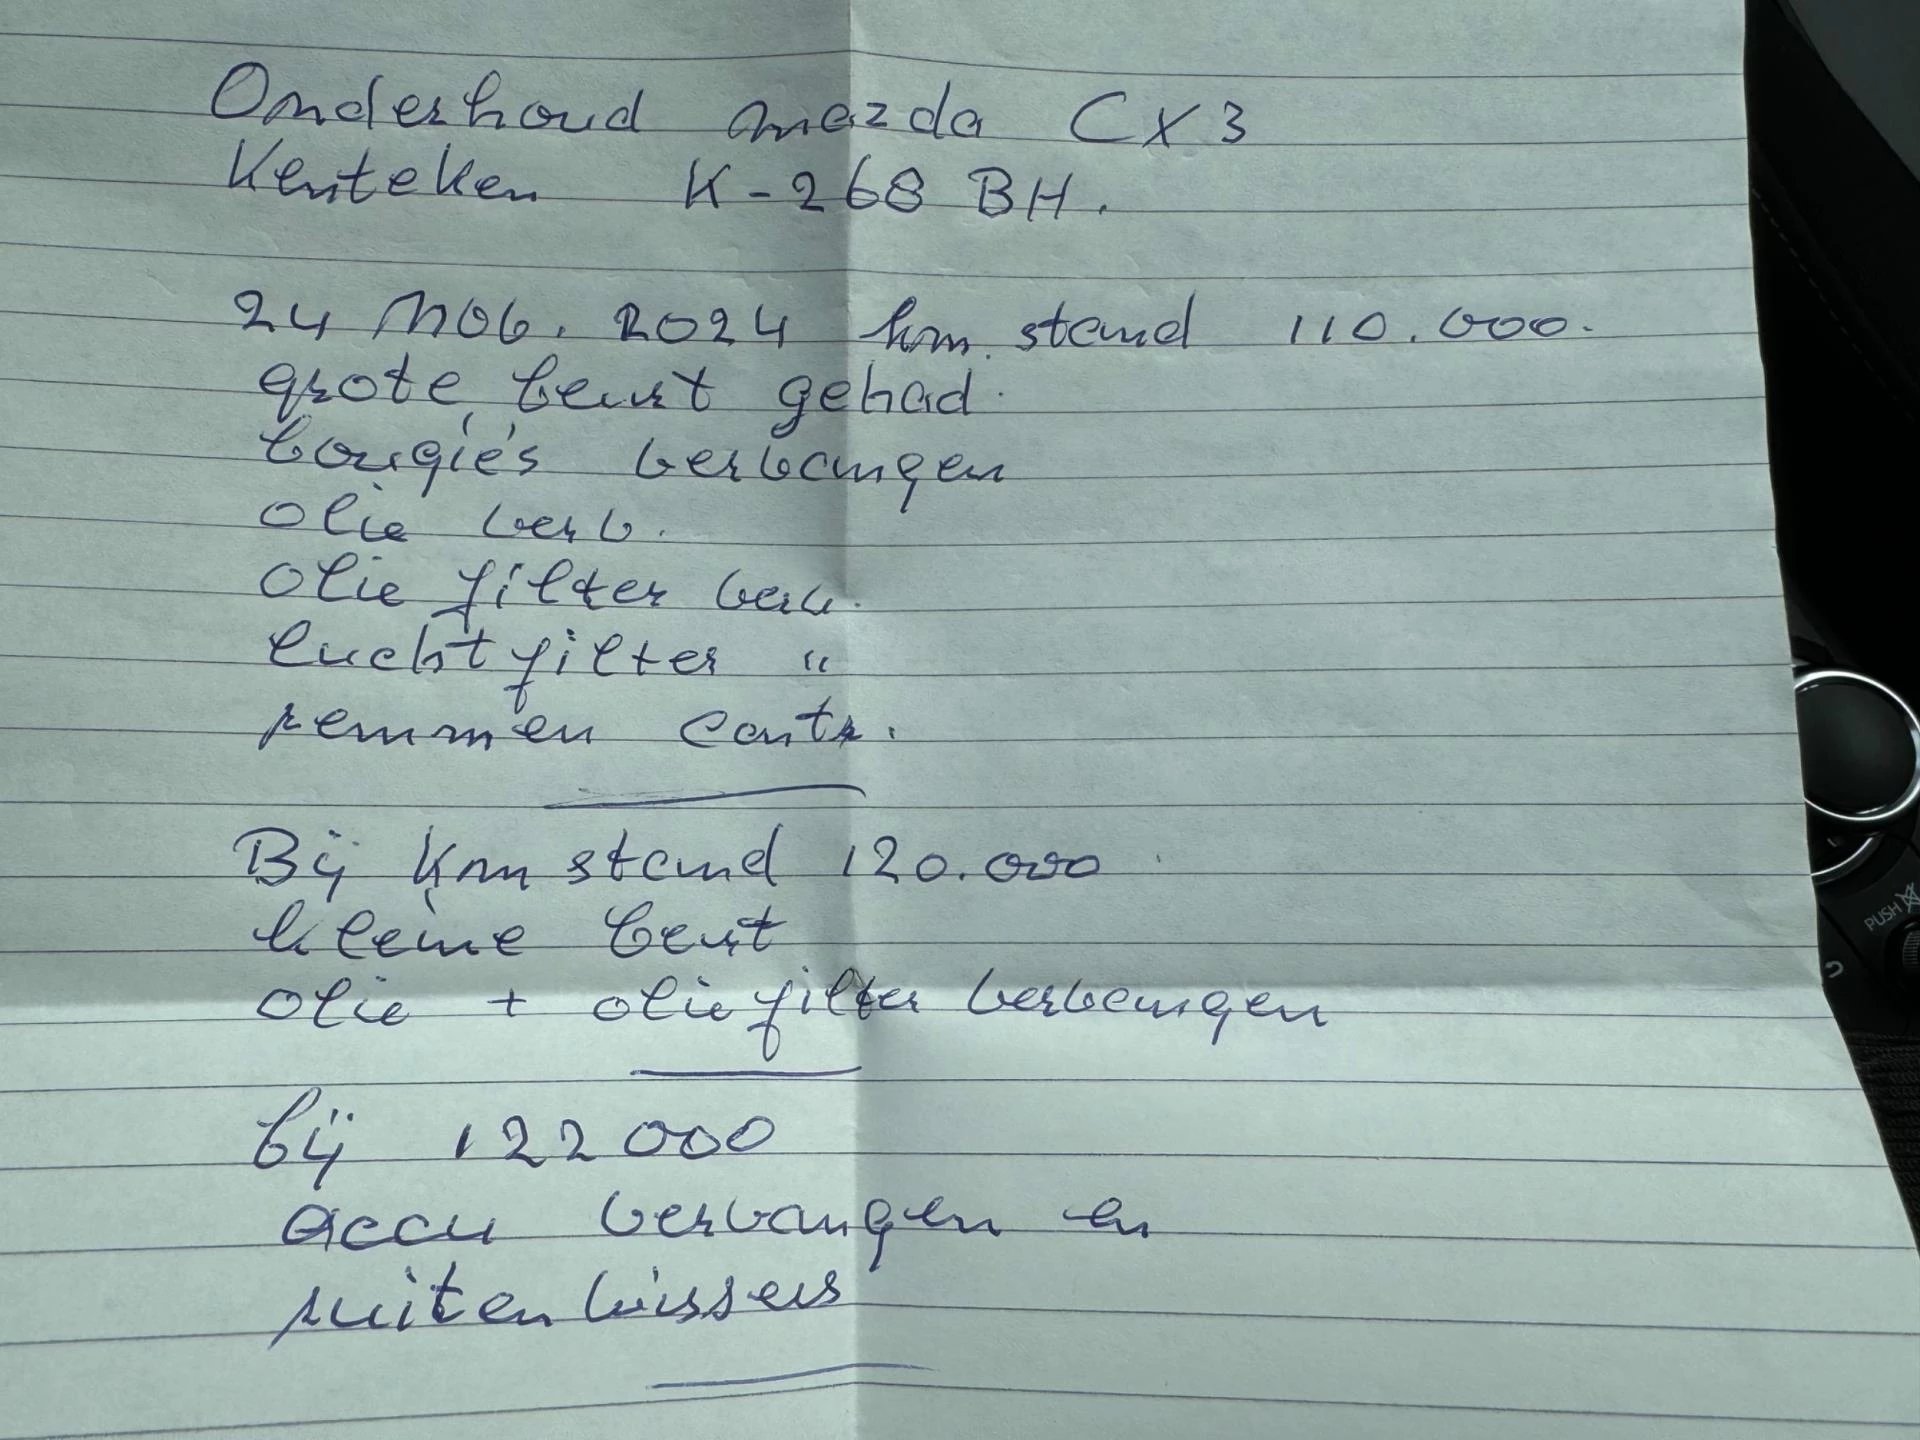 Onderhoud mazda CX3
Kenteken K-268 BH.
24 Nov. 2024 km. stand 110.000.
grote beurt gehad.
bougie's vervangen
olie verv.
olie filter verv.
luchtfilter "
remmen contr.
Bij km stand 120.000
kleine beurt
olie + oliefilter vervangen
bij 122000
accu vervangen en
ruitenwissers
PUSH